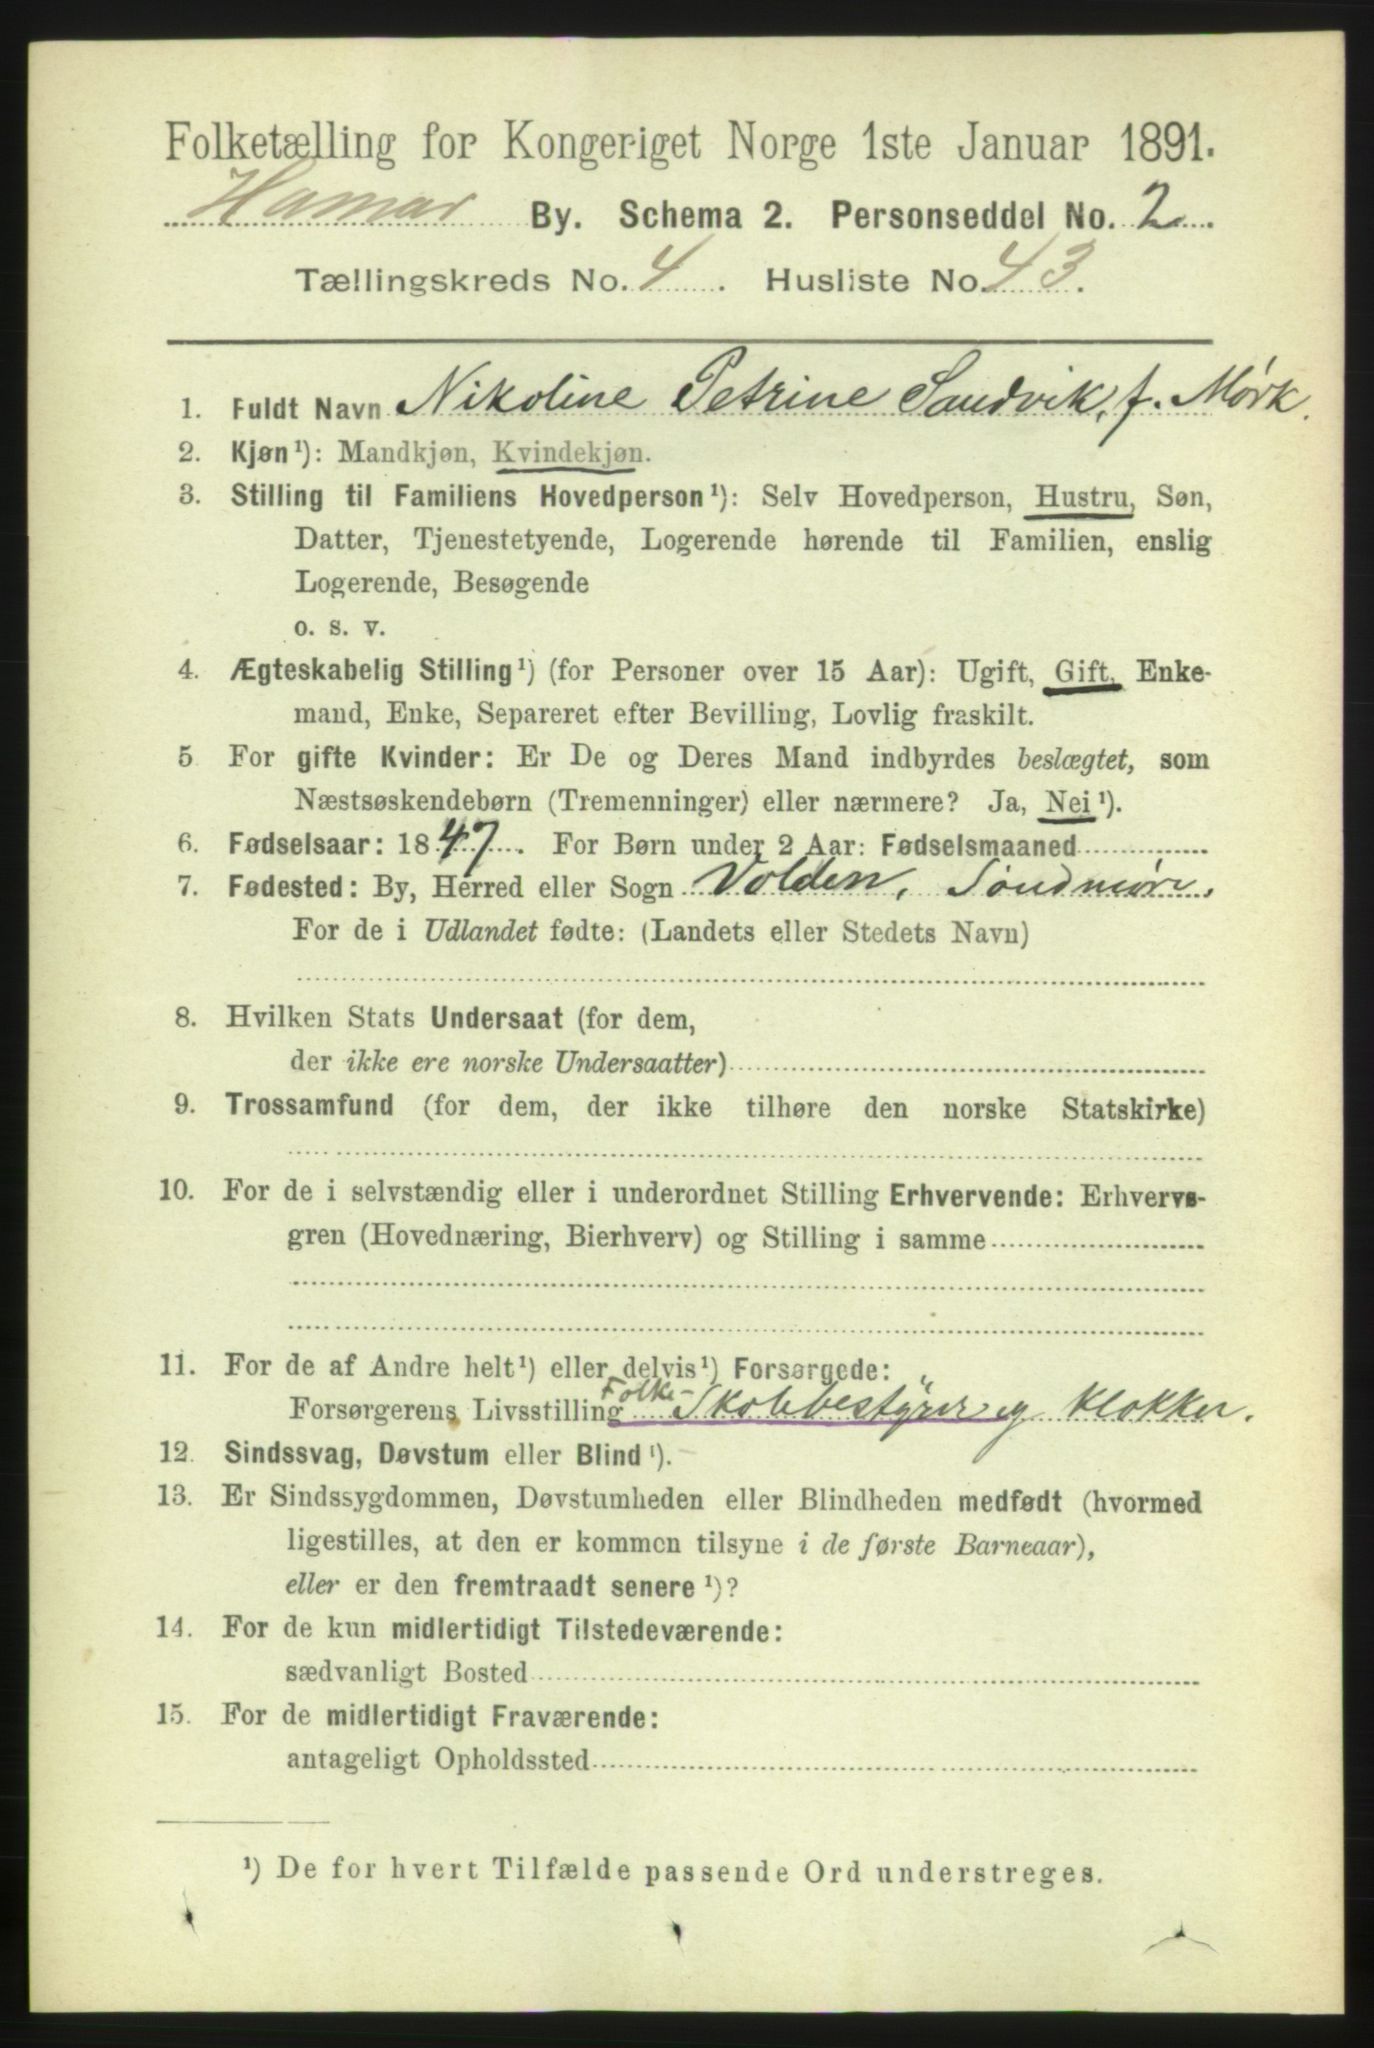 Folketælling for Kongeriget Norge 1ste Januar 1891.
Hamar By. Schema 2. Personseddel No. 2
Tællingskreds No. 4. Husliste No. 43.
1. Fuldt Navn Nikoline Petrine Sandvik, f. Mørk.
2. Kjøn¹): Mandkjøn, Kvindekjøn.
3. Stilling til Familiens Hovedperson¹): Selv Hovedperson, Hustru, Søn,
Datter, Tjenestetyende, Logerende hørende til Familien, enslig
Logerende, Besøgende
o. s. v.
4. Ægteskabelig Stilling¹) (for Personer over 15 Aar): Ugift, Gift, Enke-
mand, Enke, Separeret efter Bevilling, Lovlig fraskilt.
5 For gifte Kvinder: Er De og Deres Mand indbyrdes beslægtet, som
Næstsøskendebørn (Tremenninger) eller nærmere? Ja, Nei¹).
6. Fødselsaar: 1847. For Børn under 2 Aar: Fødselsmaaned
7. Fødested: By, Herred eller Sogn Volden, Søndmøre.
For de i Udlandet fødte: (Landets eller Stedets Navn)
8. Hvilken Stats Undersaat (for dem,
der ikke ere norske Undersaatter)
9. Trossamfund (for dem, der ikke tilhøre den norske Statskirke)
10. For de i selvstændig eller i underordnet Stilling Erhvervende: Erhvervs-
gren (Hovednæring, Bierhverv) og Stilling i samme
11. For de af Andre helt¹) eller delvis¹) Forsørgede:
Forsørgerens Livsstilling Folke-Skolebestÿrer og Klokker.
12. Sindssvag, Døvstum eller Blind¹).
13. Er Sindssygdommen, Døvstumheden eller Blindheden medfødt (hvormed
ligestilles, at den er kommen tilsyne i de første Barneaar),
eller er den fremtraadt senere¹)?
14. For de kun midlertidigt Tilstedeværende:
sædvanligt Bosted
15. For de midlertidigt Fraværende:
antageligt Opholdssted
¹) De for hvert Tilfælde passende Ord understreges.